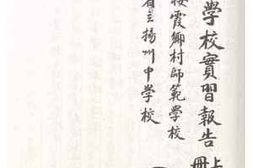 學校實習報告上冊
棲霞鄉村師範學校
省立揚州中學校